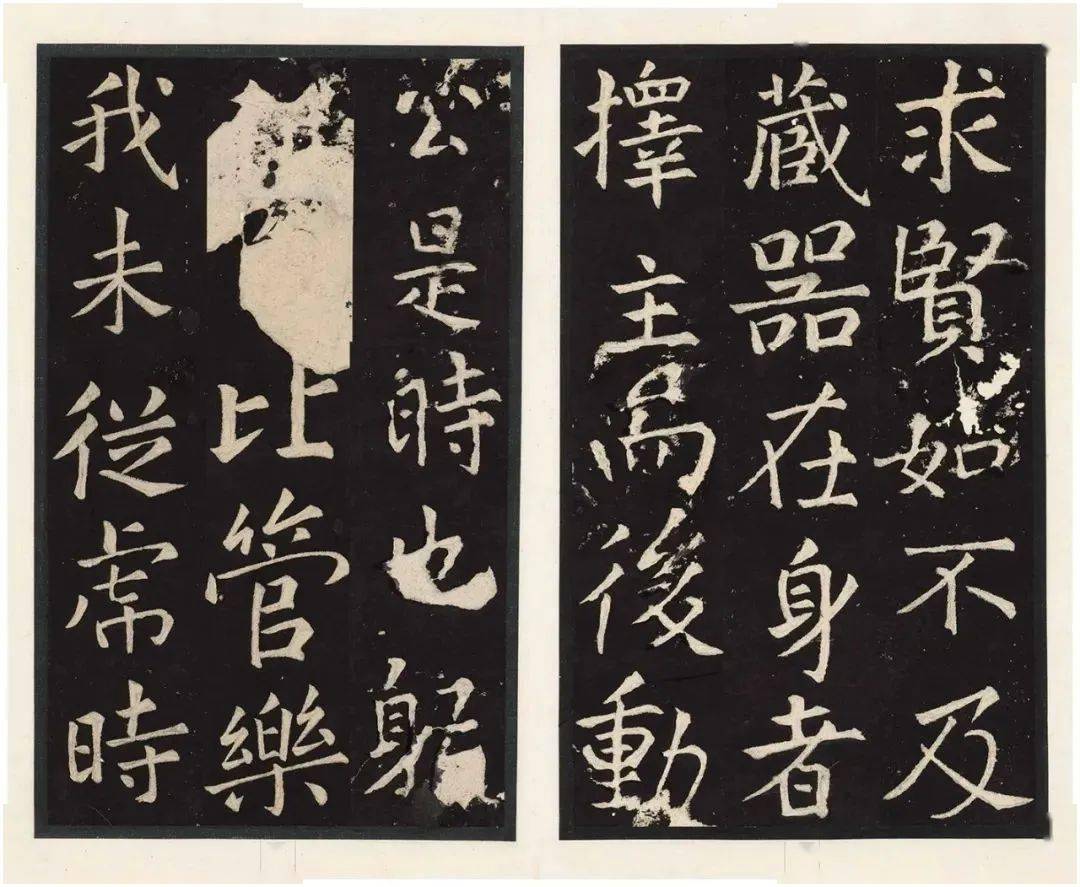 求賢如不及
藏器在身者
擇主而後動
公是時也躬
比管樂
我未從虎時